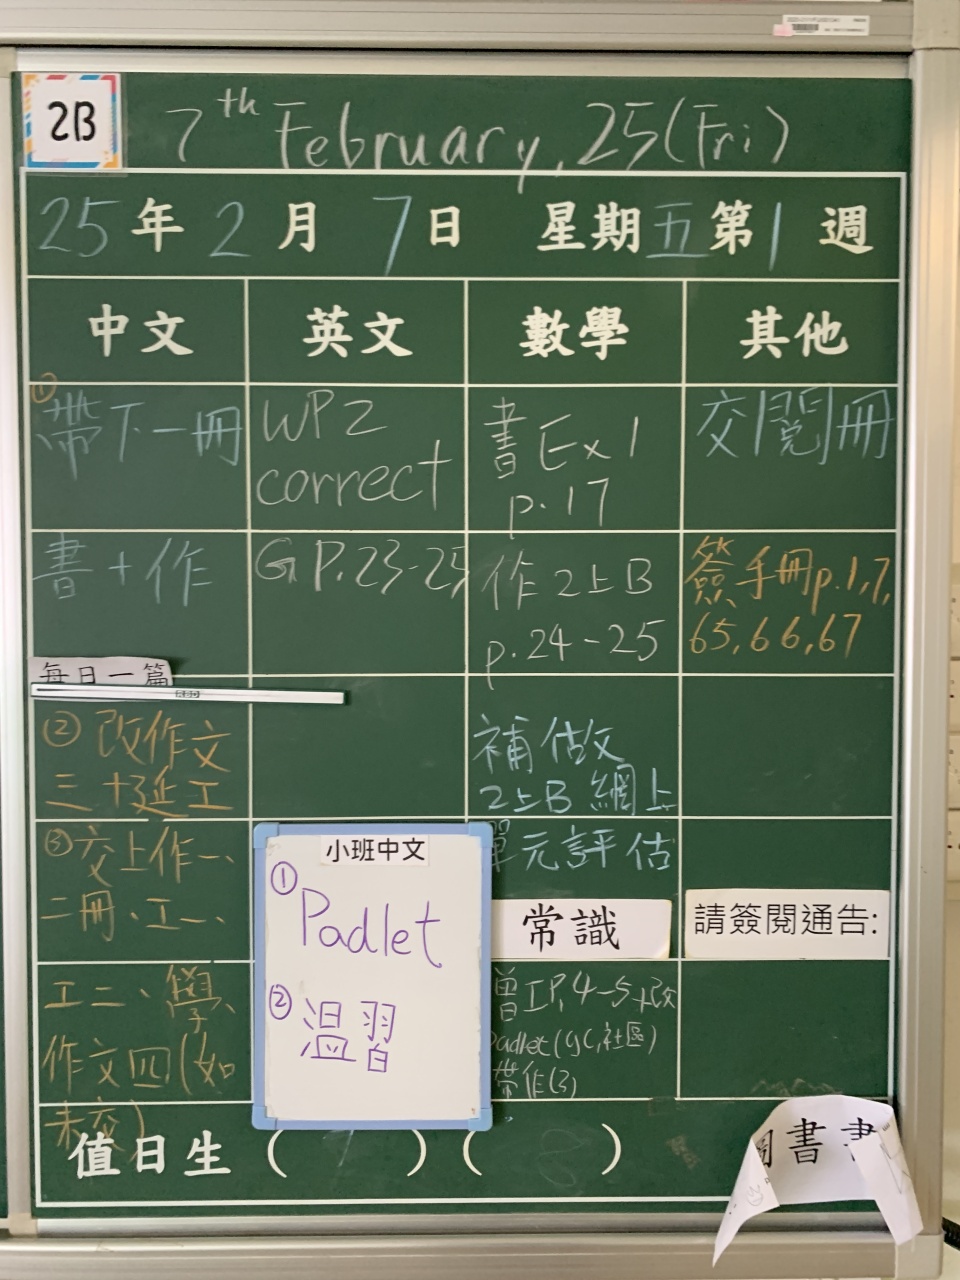 2B
7th February, 25(Fri)
25年2月7日 星期五第1週
中文 英文 數學 其他
① 帶下一冊
書+作
每日一篇
② 改作文
三+延工
③交上作一、
二冊、工一、
工二、學、
作文四(如
未交)
WP2
correct
G P.23-25
小班中文
①
Padlet
②
溫習
書 Ex 1
p.17
作2上B
p.24-25
補做
2上B 網上
單元評估
常識
P.4-5+改
Padlet
社區)
帶作(3)
交閱冊
簽手冊p.1,7,
65,66,67
請簽閱通告:
值日生 ( 7 ) ( 8 )
圖書